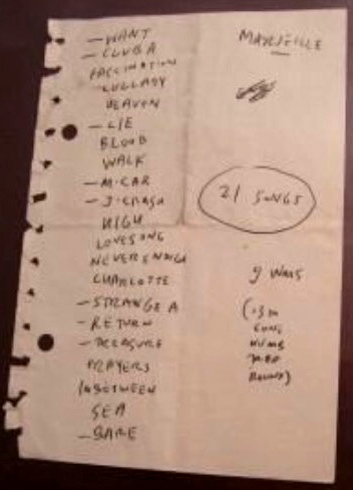 – WANT
– CLUB A
FASCINATION
LULLABY
HEAVEN
– LIE
BLOOD
WALK
– M.CAR
– J.CRASH
HIGH
LOVESONG
NEVERENOUGH
CHARLOTTE
– STRANGE A
– RETURN
– TREASURE
PRAYERS
INBETWEEN
SEA
– BARE
MAYRSVILLE
21 SONGS
9 WMS